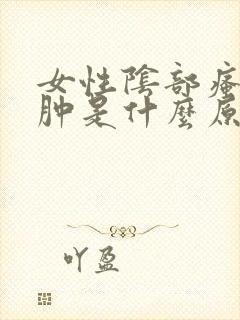 女性陰部瘙
肿是什麼原
吖盈